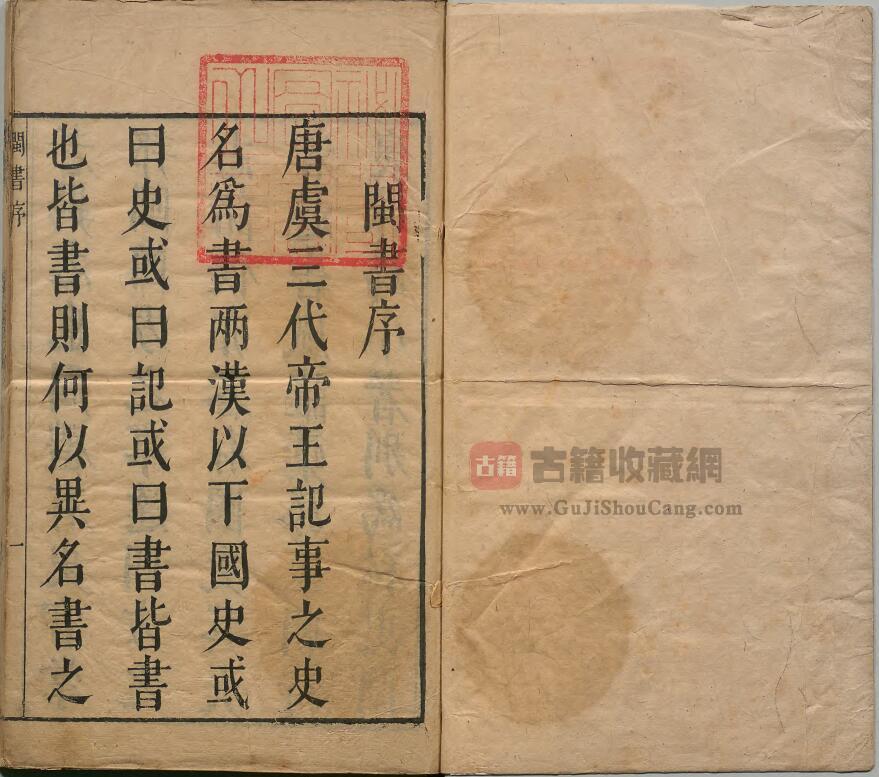 閩書序
唐虞三代帝王記事之史
名爲書兩漢以下國史或
曰史或曰記或曰書皆書
也皆書則何以異名書之
閩書序
一
古籍
古籍收藏網
www.GuJiShouCang.com